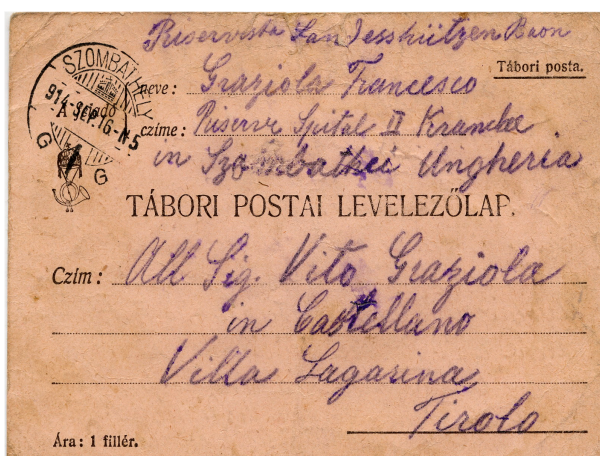 Riservista Landesshützen Baon
Tábori posta.
SZOMBATHELY
914 SEP. 16 - N5
G G
A feladó neve: Graziola Francesco
czíme: Riserve Spital II Kranke
in Szombathei Ungheria
TÁBORI POSTAI LEVELEZŐLAP.
Czím: All Sig. Vito Graziola
in Castellano
Villa Lagarina
Tirolo
Ára: 1 fillér.